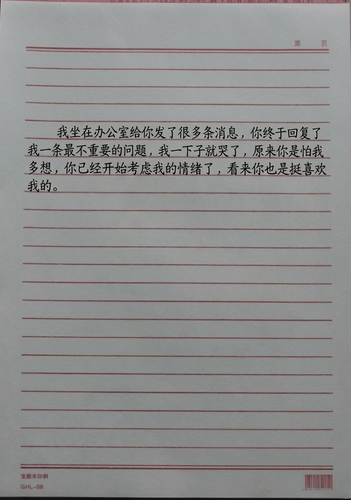 第 页
我坐在办公室给你发了很多条消息，你终于回复了
我一条最不重要的问题，我一下子就哭了，原来你是怕我
多想，你已经开始考虑我的情绪了，看来你也是挺喜欢
我的。
QHL-08